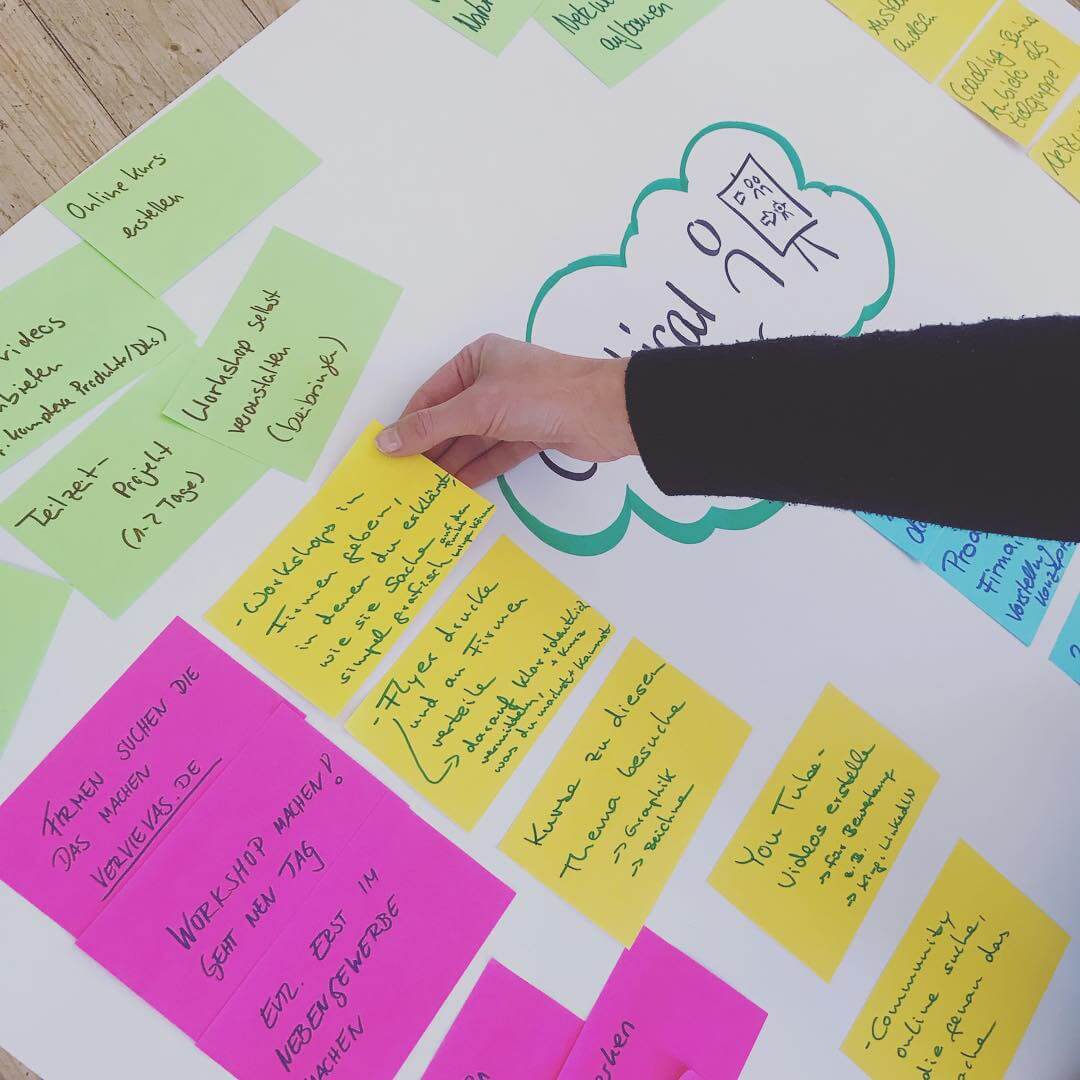 Netzwe
aufbauen
Coaching-
Anbieter als
Zielgruppe!
Online Kurs
erstellen
videos
komplexe Produkte/DLs)
Workshop selbst
veranstalten
(beibringen)
Teilzeit-
Projekt
(1-2 Tage)
ical
- Workshops in
Firmen geben,
in denen du erklärst,
wie sie Sache
simpel grafisch auf den
Punkt
bringen können
- Flyer drucke
und an Firmen
verteile
→ darauf klar + deutlich
vermitteln, + kurz
was du machst + kannst
Kurse zu diesem
Thema besuche
→ Graphik
→ zeichne
You Tube-
Videos erstelle
→ für Bewerbung
z.B.
→ Xing, LinkedIN
- Community
online suche,
die genau das
ache
Prod
Firma
vorstellen
FIRMEN SUCHEN DIE
DAS MACHEN
VERVIEVAS.DE
WORKSHOP MACHEN!
GEHT NEN TAG
EVTL. ERST IM
NEBENGEWERBE
MACHEN